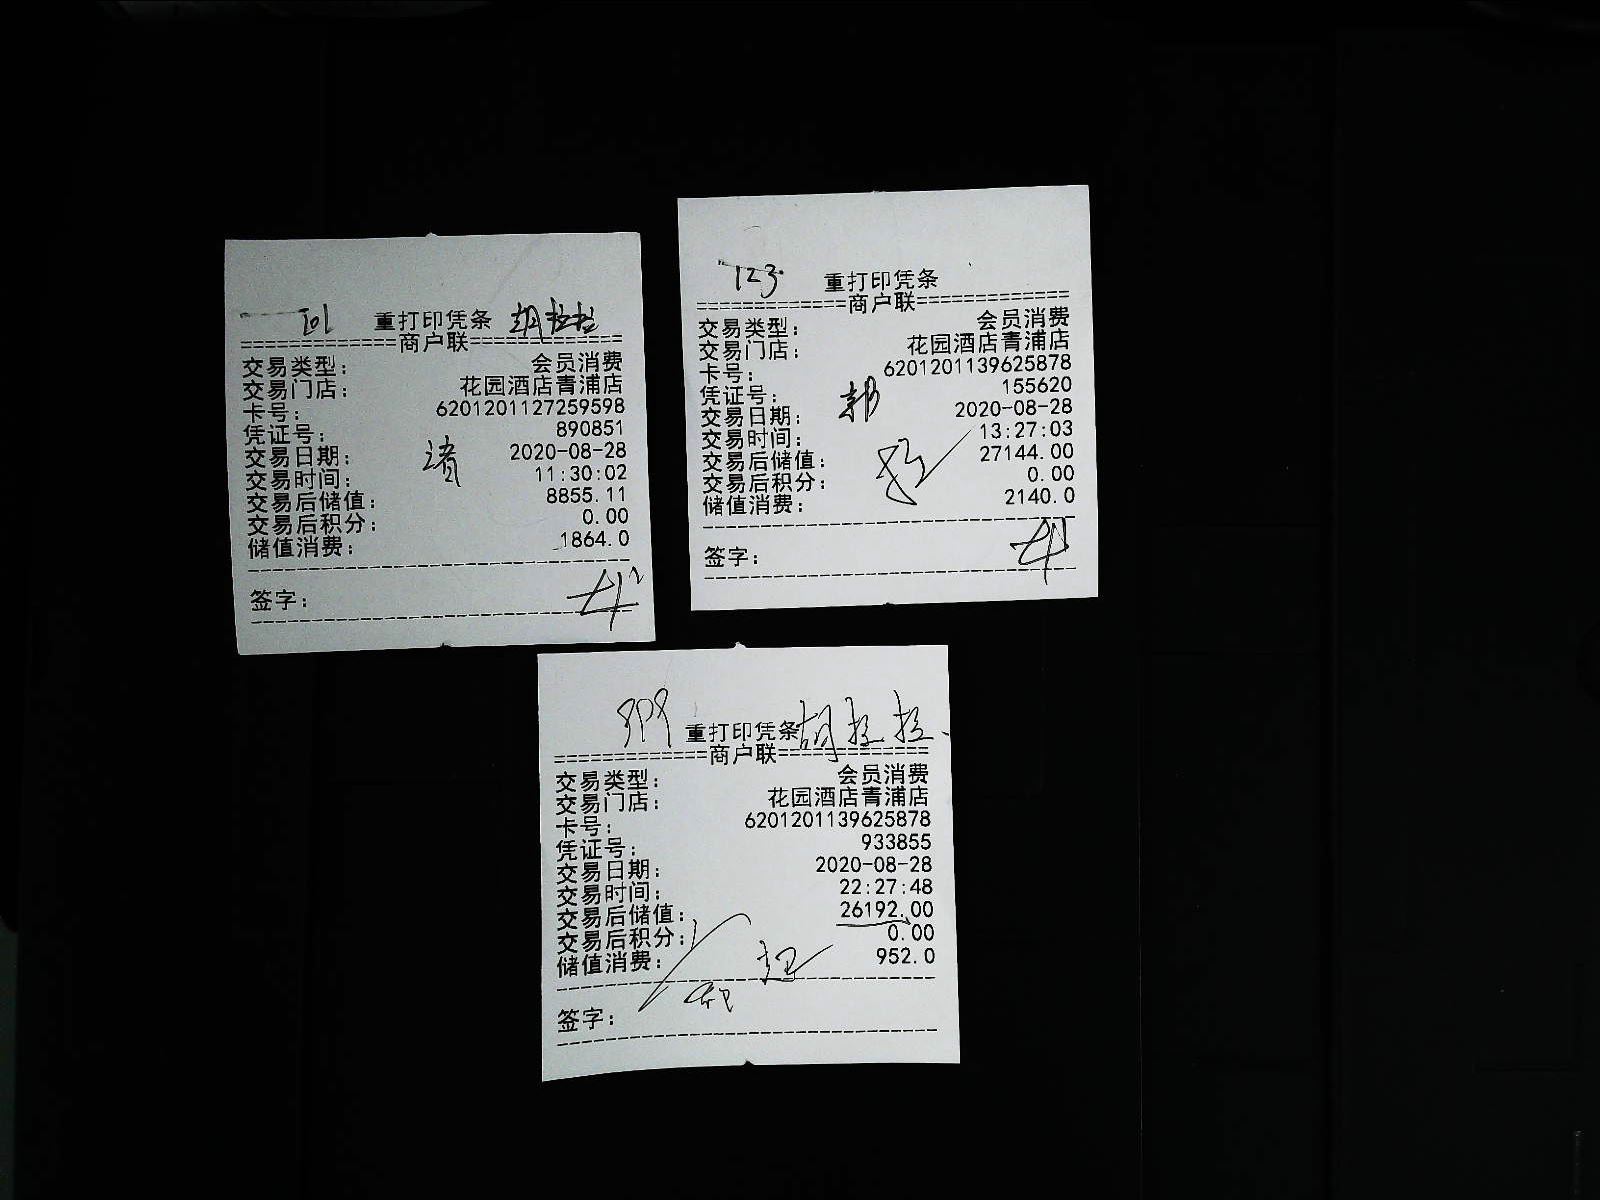 101 重打印凭条 胡拉拉
=============商户联=============
交易类型： 会员消费
交易门店： 花园酒店青浦店
卡号： 6201201127259598
凭证号： 890851
交易日期： 2020-08-28
交易时间： 11:30:02
交易后储值： 8855.11
交易后积分： 0.00
储值消费： 1864.0
签字：
123 重打印凭条
=============商户联=============
交易类型： 会员消费
交易门店： 花园酒店青浦店
卡号： 6201201139625878
凭证号： 155620
交易日期： 2020-08-28
交易时间： 13:27:03
交易后储值： 27144.00
交易后积分： 0.00
储值消费： 2140.0
签字：
重打印凭条 胡拉拉
=============商户联=============
交易类型： 会员消费
交易门店： 花园酒店青浦店
卡号： 6201201139625878
凭证号： 933855
交易日期： 2020-08-28
交易时间： 22:27:48
交易后储值： 26192.00
交易后积分： 0.00
储值消费： 952.0
签字：